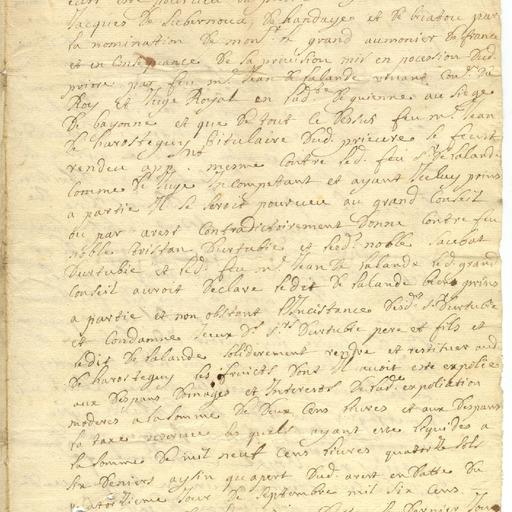 Jacques de Subernoua de handaye et de biatou par
la nomination de monsr le grand aumonier de france
et en consequance de la provision mis en pocession dud.
priore par feu mr Jean de Lalande vivant conr. du
Roy et Juge Royal en lad. de guienne au siege
de bayonne et que de tout ce dessus feu mr Jean
de harosteguy titulaire dud. prieure se feust
rendeu app. mesme contre led. feu sr de lalande
comme de Juge Incompetant et ayant Iceluy prins
a partie Il se seroit pourveu au grand Conseil
ou par arest contradictoirement donne contre feu
noble tristan Durtubie et led. noble
Durtubie et led. feu mr Jean de lalande led. grand
Conseil auroit declare ledit de lalande bien prins
a partie et non obstant l'Incistance desd. srs Durtubie
et condamne Iceux d. srs Durtubie pere et fils et
ledit de lalande soliderement rendre et restituer aud.
de harosteguy les fruicts dont Il auoit este expolie
aux despans domages et Interests de lad. expoliation
moderes a la somme de deux cens liures et aux despans
la taxe reseruee les quels ayant este liquides a
la somme de mil neuf cens liures quatorse sols
six deniers aysin quapert dud. arest en datte du
quatorsieme Jour de septembre mil six cens
dernier Jour